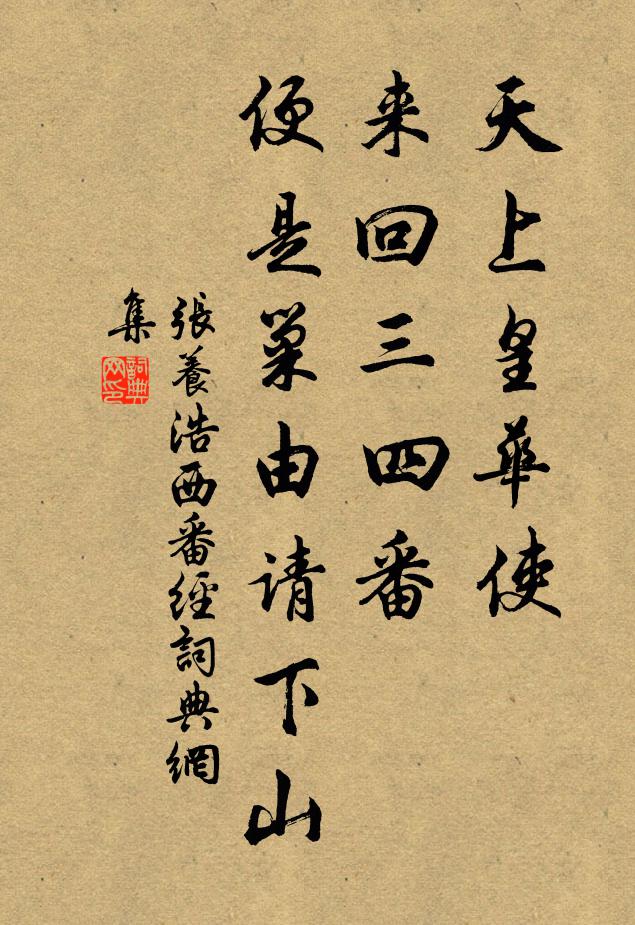 天上皇華使
来回三四番
便是巢由请下山
張養浩西番經詞典網
集
詞典
网印